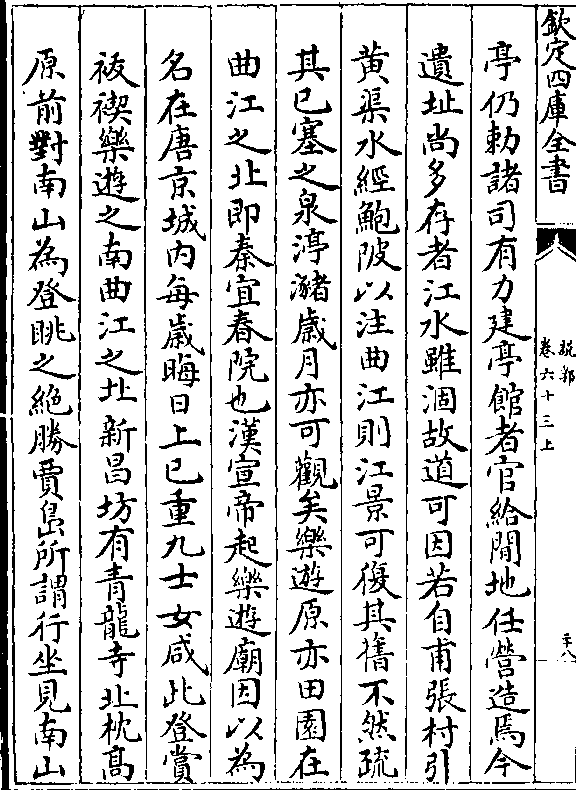 欽定四庫全書
說郛
卷六十三上
亭仍勅諸司有力建亭館者官給閒地任營造焉今
遺址尚多存者江水雖涸故道可因若自甫張村引
黄渠水經鮑陂以注曲江則江景可復其舊不然疏
其已塞之泉渟瀦歲月亦可觀矣樂遊原亦田園在
曲江之北即秦宜春院也漢宣帝起樂遊廟因以為
名在唐京城内每歲晦日上巳重九士女咸此登賞
祓禊樂遊之南曲江之北新昌坊有青龍寺北枕髙
原前對南山為登眺之絶勝賈島所謂行坐見南山